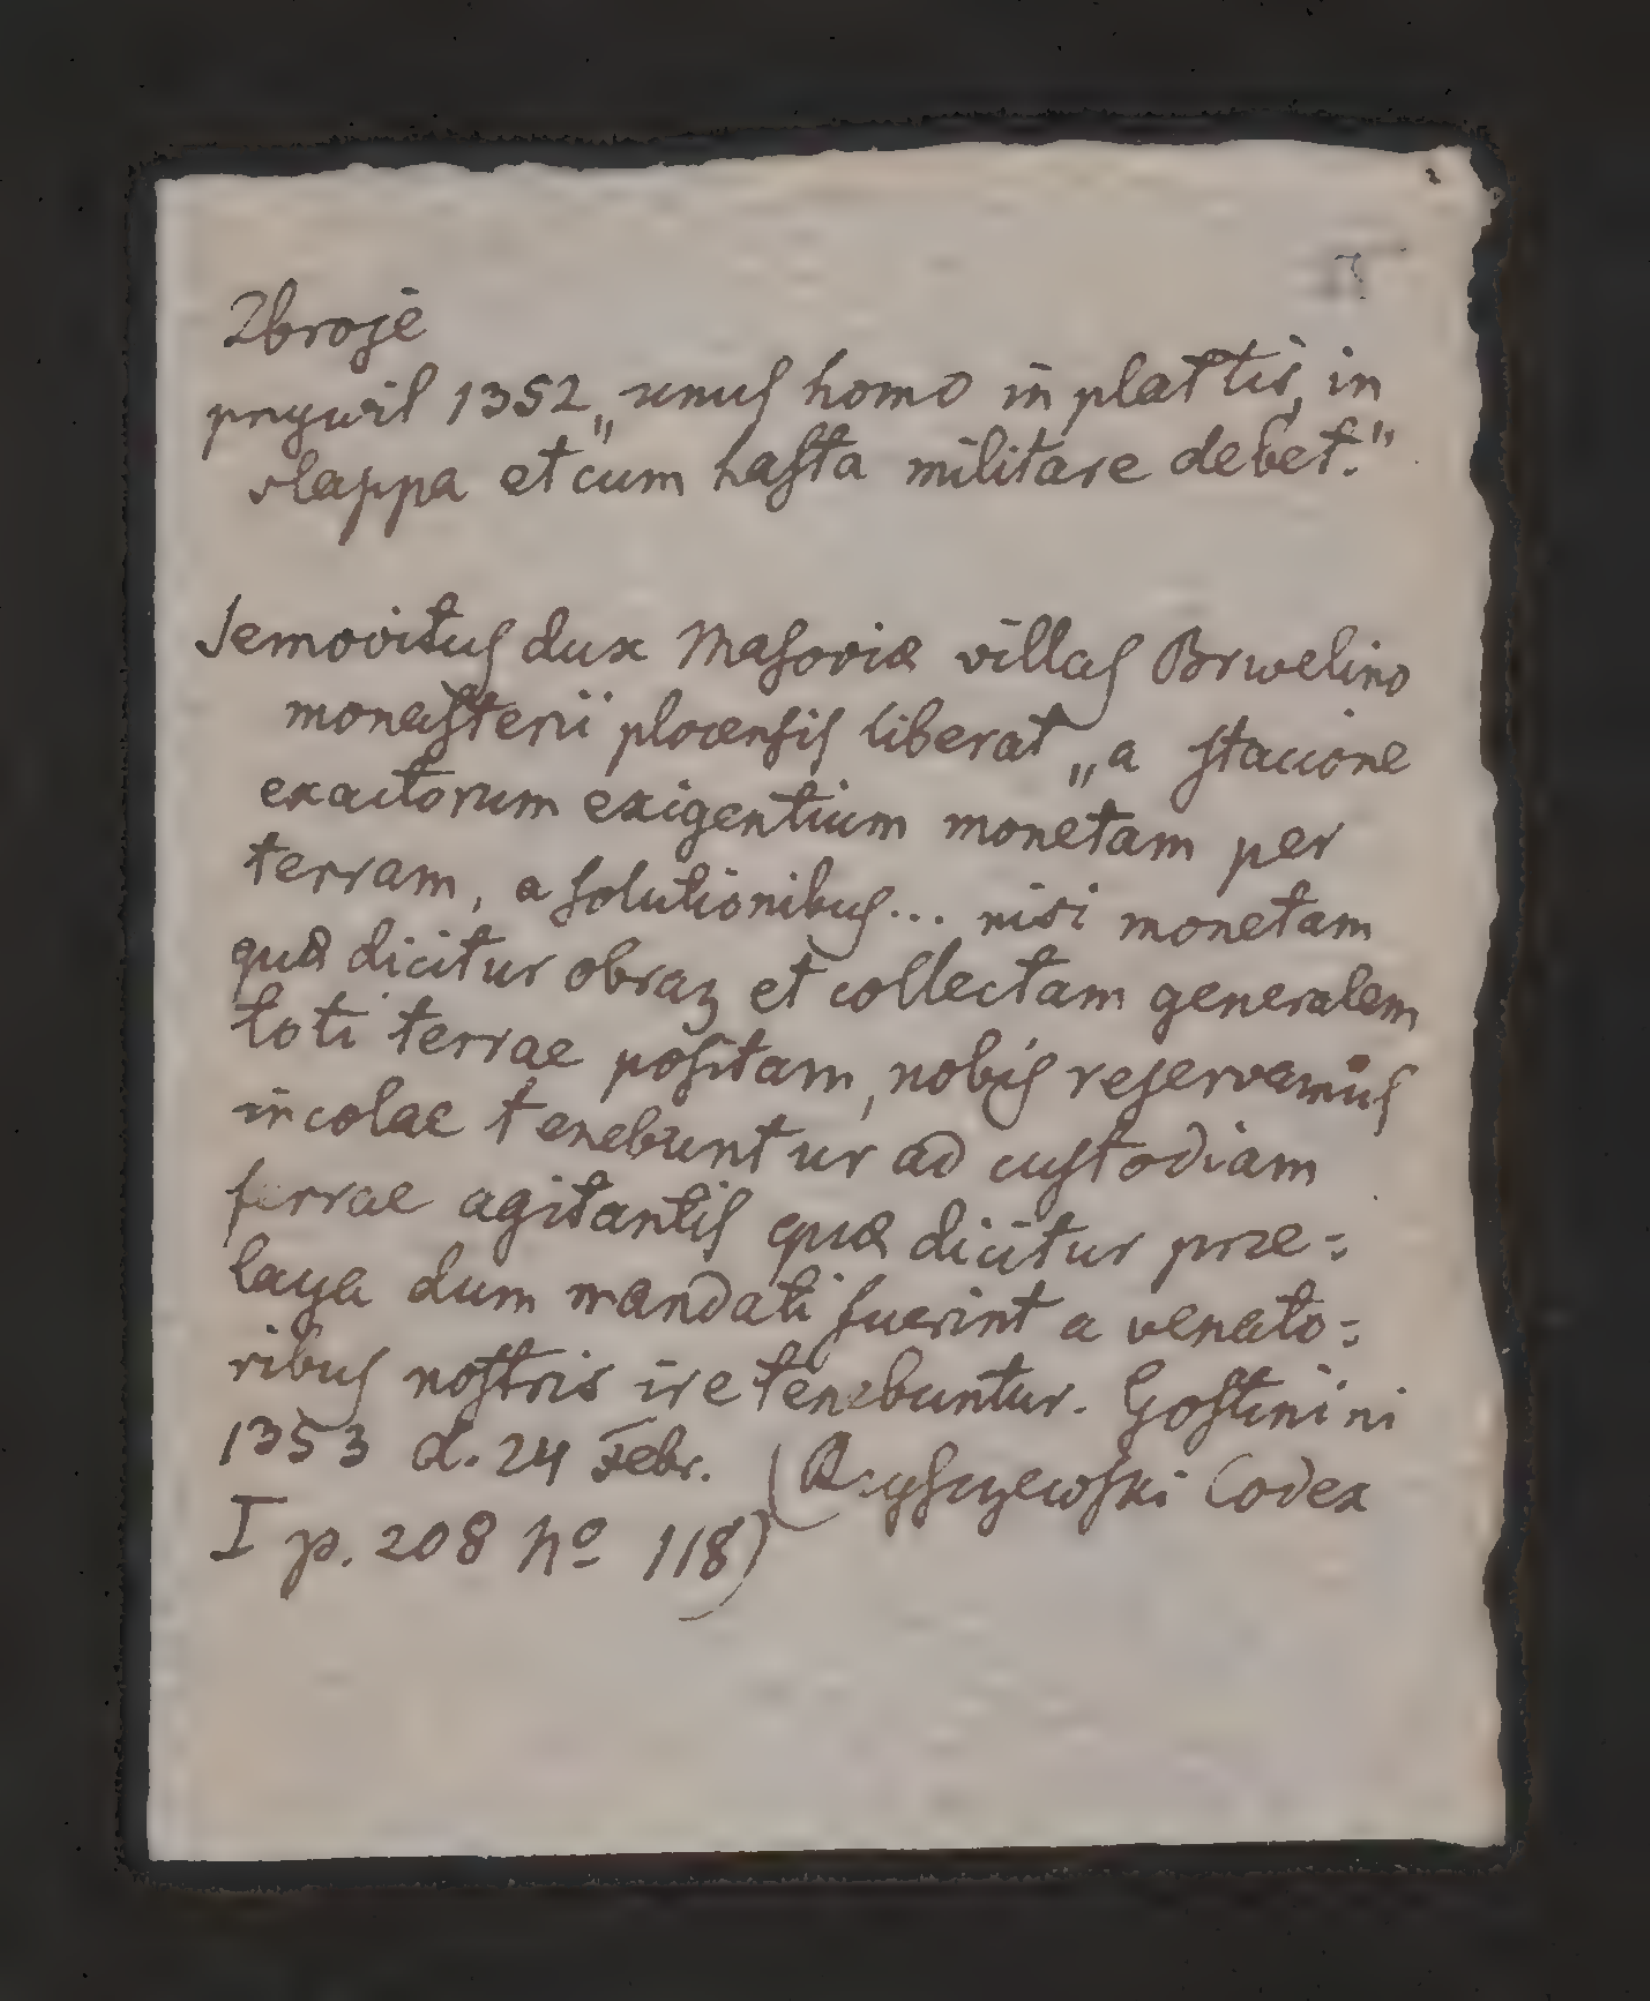 Zbroje
przywil 1352 „unus homo in plattis, in
slappa et cum hasta militare debet."
Semovitus dux Masoviæ villas Brwelino
monasterii plocensis liberat „a stacione
exactorum exigentium monetam per
terram, a solutionibus... nisi monetam
quæ dicitur obraz et collectam generalem
toti terrae positam, nobis reservamus
incolae tenebuntur ad custodiam
ferrae agitantis quæ dicitur prze=
laya dum mandati fuerint a venato=
ribus nostris ire tenebuntur. Gostinini
1353 d. 24 Febr. (Rzyszczewski Codex
I p. 208 No 118)